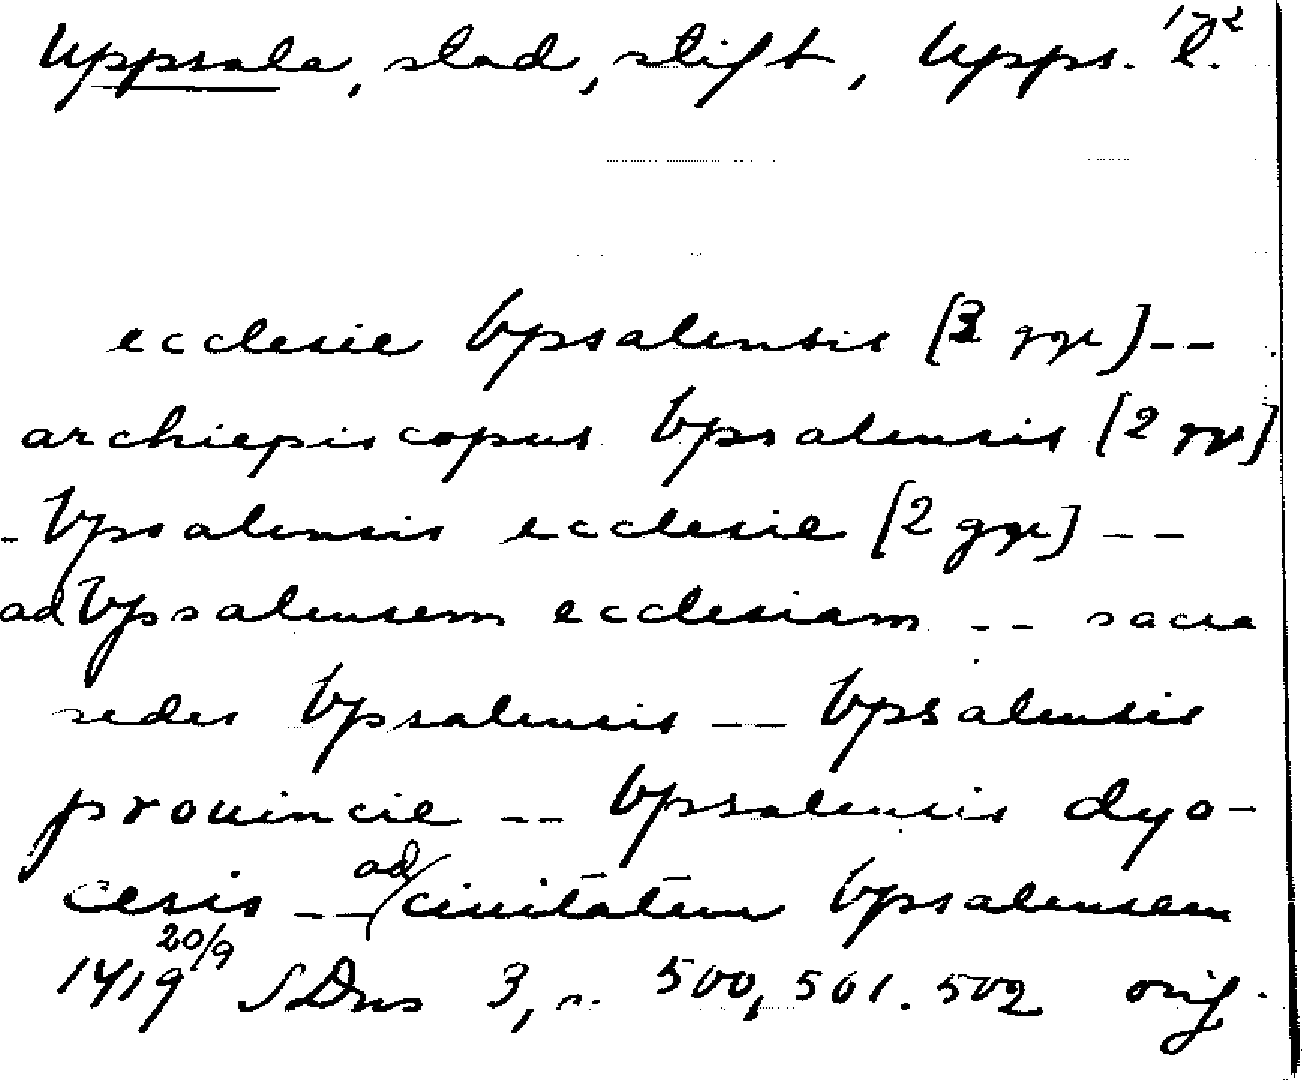 Uppsala, stad, stift, Upps. l. 172
ecclesie Vpsalensis [3 ggr] --
archiepiscopus Vpsalensis [2 ggr]
- Vpsalensis ecclesie [2 ggr] --
ad Vpsalensem ecclesiam -- sacra
sedes Vpsalensis -- Vpsalensis
prouincie -- Vpsalensis dyo-
cesis -- ad ciuitatem Vpsalensem
1419 20/9 SDns 3, n. 500, 501. 502 orig.